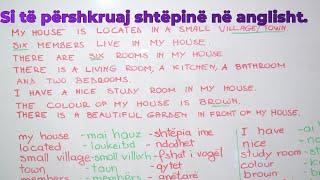 Si të përshkruaj shtëpinë në anglisht.
MY HOUSE IS LOCATED IN A SMALL VILLAGE/TOWN.
SIX MEMBERS LIVE IN MY HOUSE.
THERE ARE SIX ROOMS IN MY HOUSE.
THERE IS A LIVING ROOM, A KITCHEN, A BATHROOM
AND TWO BEDROOMS.
I HAVE A NICE STUDY ROOM IN MY HOUSE.
THE COLOUR OF MY HOUSE IS BROWN.
THERE IS A BEAUTIFUL GARDEN IN FRONT OF MY HOUSE.
my house - mai hauz - shtëpia ime
located - loukeitid - ndodhet
small village - small villixh - fshat i vogël
town - taun - qytet
members - membërs - anëtarë
I have - ai
nice -
study room - s
colour -
brown -